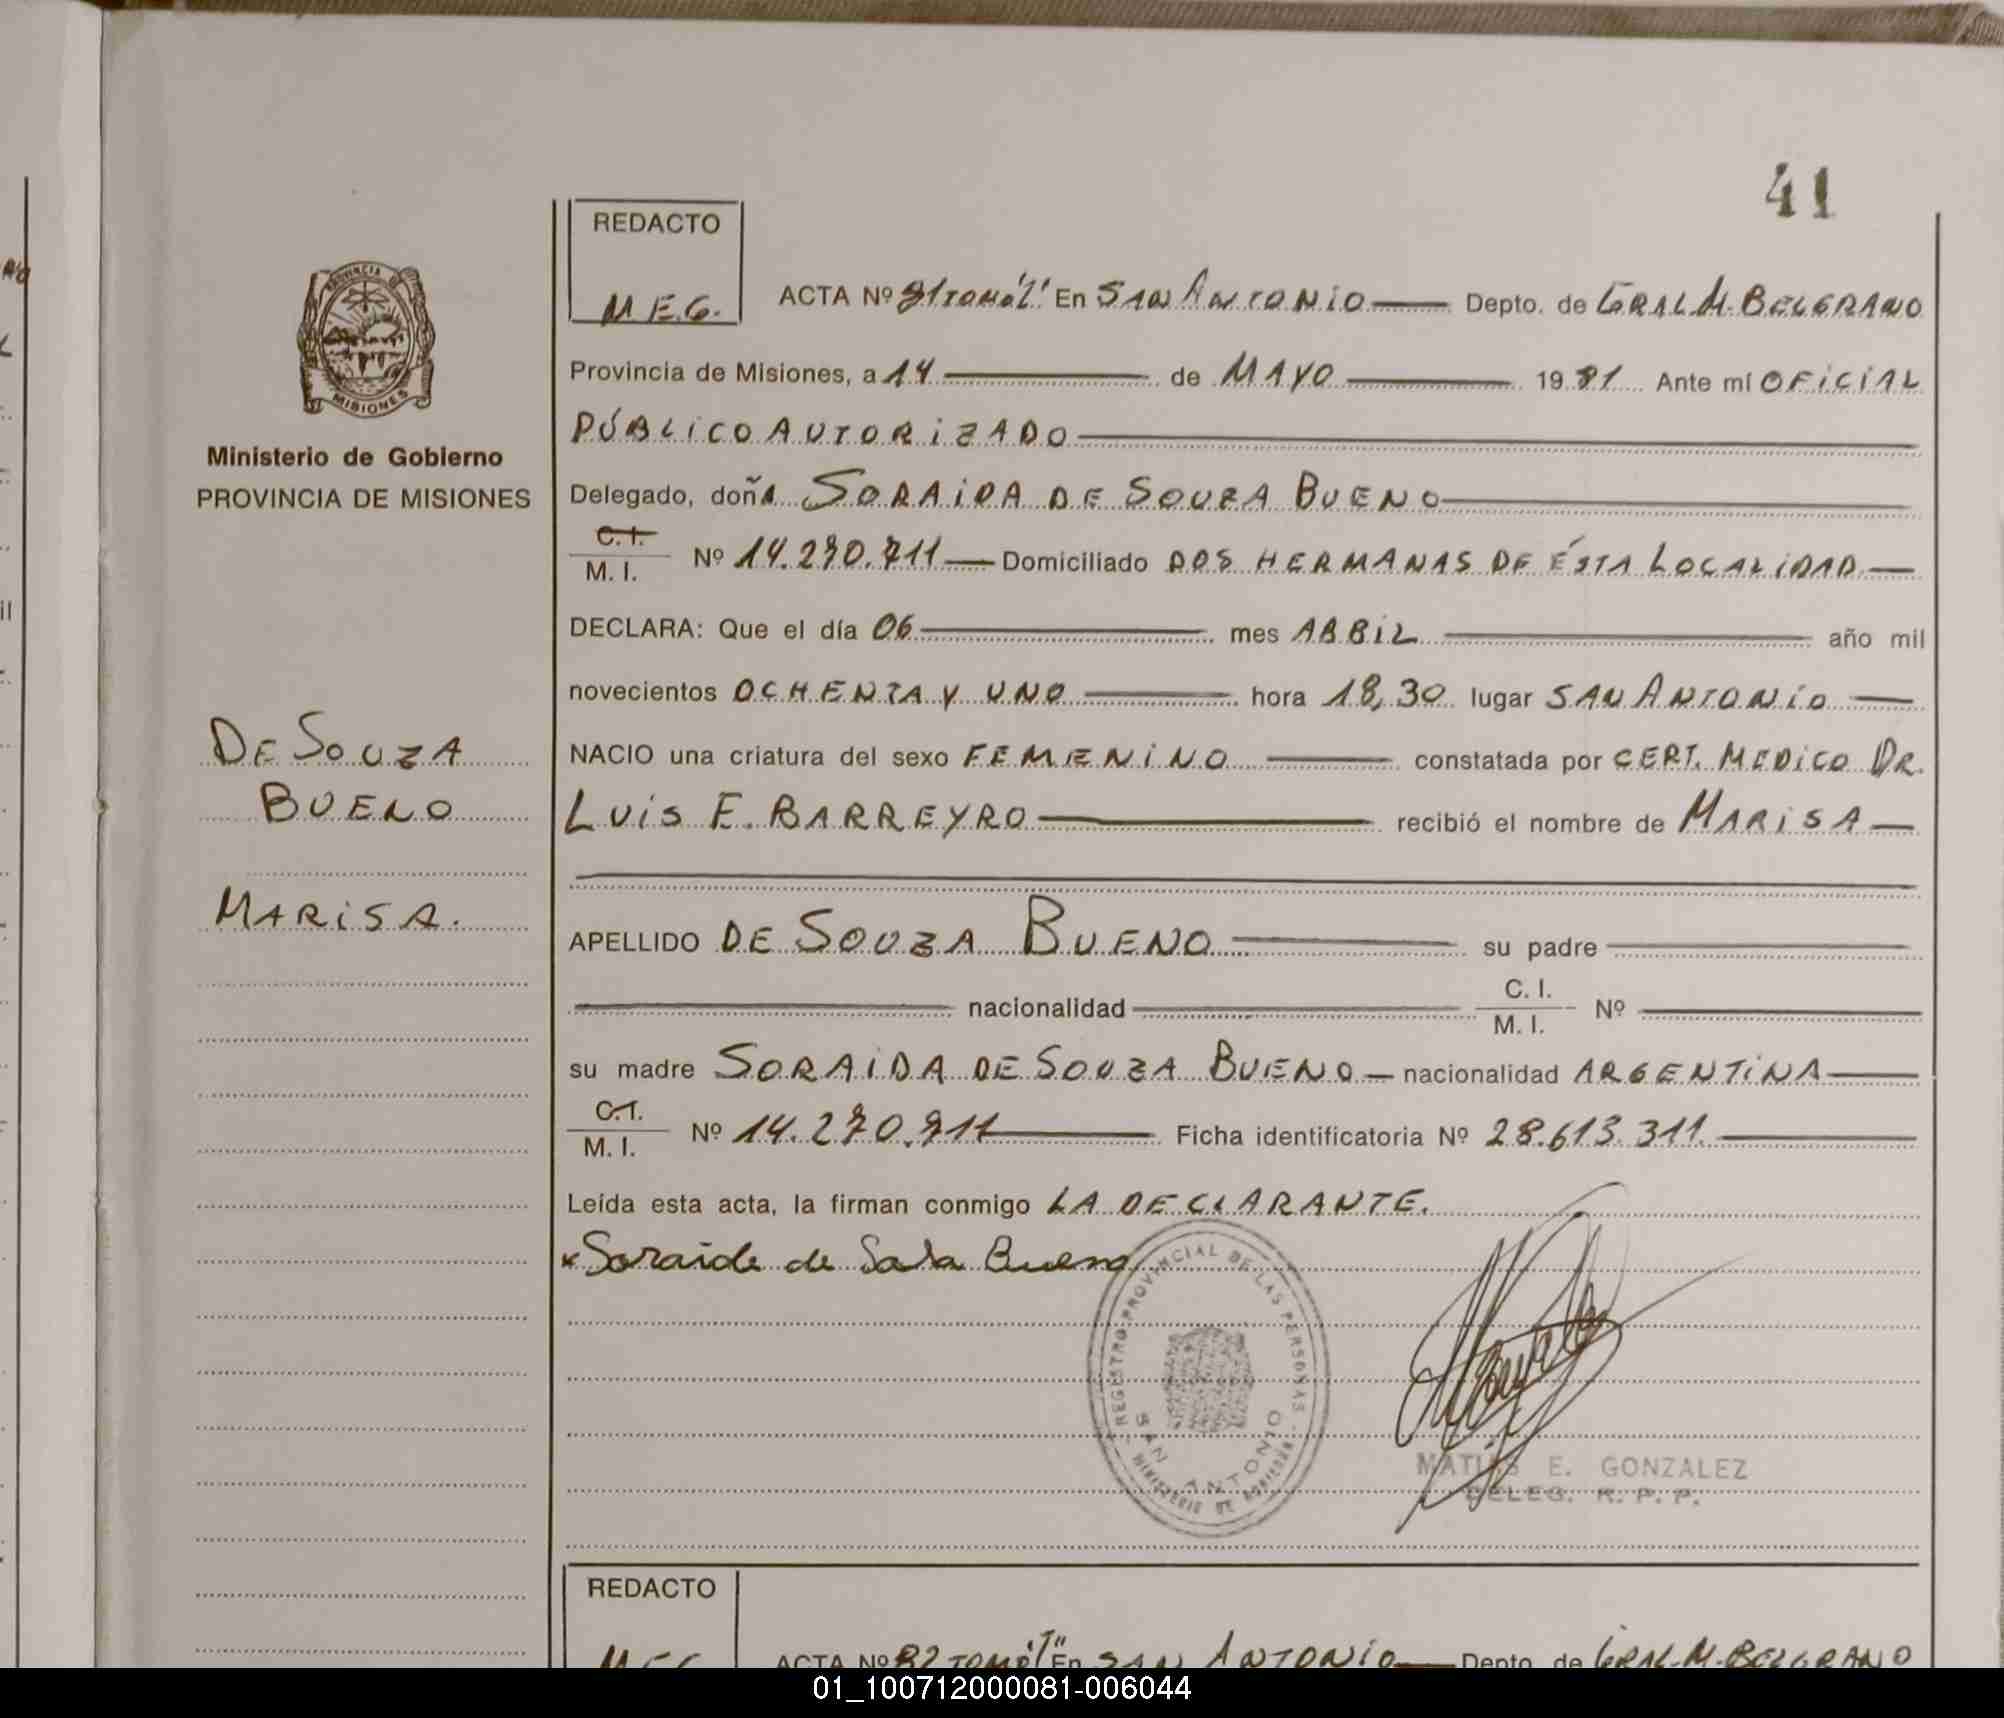 41
REDACTO
M.E.G.
ACTA Nº 81 TOMO "I" En SAN ANTONIO Depto. de GRAL M. BELGRANO
Provincia de Misiones, a 14 de MAYO 1981 Ante mí OFICIAL
PÚBLICO AUTORIZADO
Ministerio de Gobierno
PROVINCIA DE MISIONES
Delegado, doña SORAIDA DE SOUZA BUENO
C. I.
M. I. Nº 14.270.711 Domiciliado DOS HERMANAS DE ÉSTA LOCALIDAD
DECLARA: Que el día 06 mes ABRIL año mil
novecientos OCHENTA Y UNO hora 18,30 lugar SAN ANTONIO
DE SOUZA
BUENO
MARISA.
NACIO una criatura del sexo FEMENINO constatada por CERT. MEDICO DR.
LUIS E. BARREYRO recibió el nombre de MARISA
APELLIDO DE SOUZA BUENO su padre
nacionalidad C. I.
M. I. Nº
su madre SORAIDA DE SOUZA BUENO nacionalidad ARGENTINA
C. I.
M. I. Nº 14.270.711 Ficha identificatoria Nº 28.613.311
Leída esta acta, la firman conmigo LA DECLARANTE.
Soraide de Bueno
REGISTRO PROVINCIAL DE LAS PERSONAS
SAN ANTONIO
MINISTERIO DE
MATIAS E. GONZALEZ
DELEG. R. P. P.
REDACTO
ACTA Nº 82 TOMO "I" En SAN ANTONIO Depto. de GRAL. M. BELGRANO
01_100712000081-006044